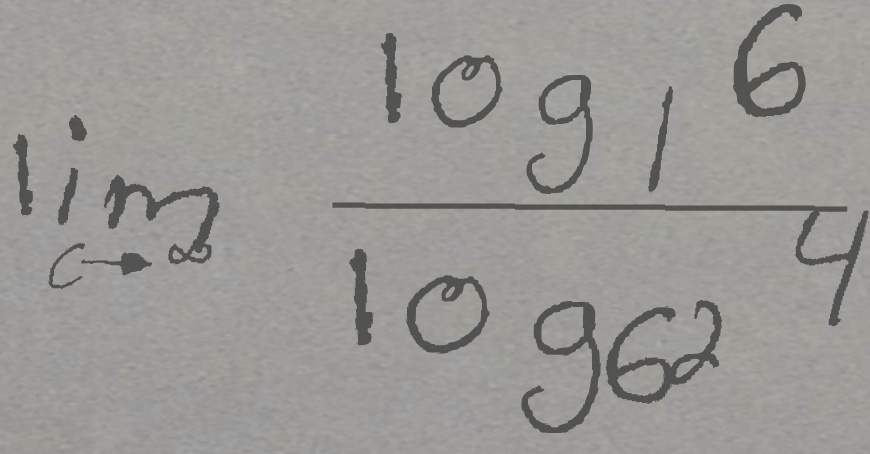 \lim_{c \to \infty} \frac{\log_{1} 6}{\log_{62} 4}